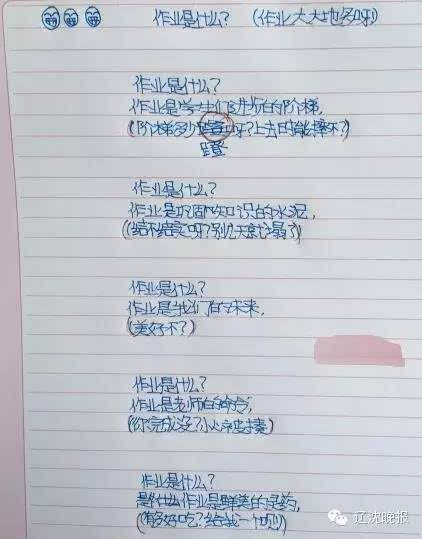 作业是什么？（作业大大地多呀！）
作业是什么？
作业是学生们进步的阶梯，
（阶梯多少蹬呀？上去时能摔不？）
蹬
作业是什么？
作业是巩固知识的水泥，
（结不结实呀？别几天就塌了）
作业是什么？
作业是我们的未来，
（美好不？）
作业是什么？
作业是老师的命令，
（你完成没？小心被揍）
作业是什么？
是什么作业是鲜美的灵药，
（有多好吃？给我一个呗！）
辽沈晚报